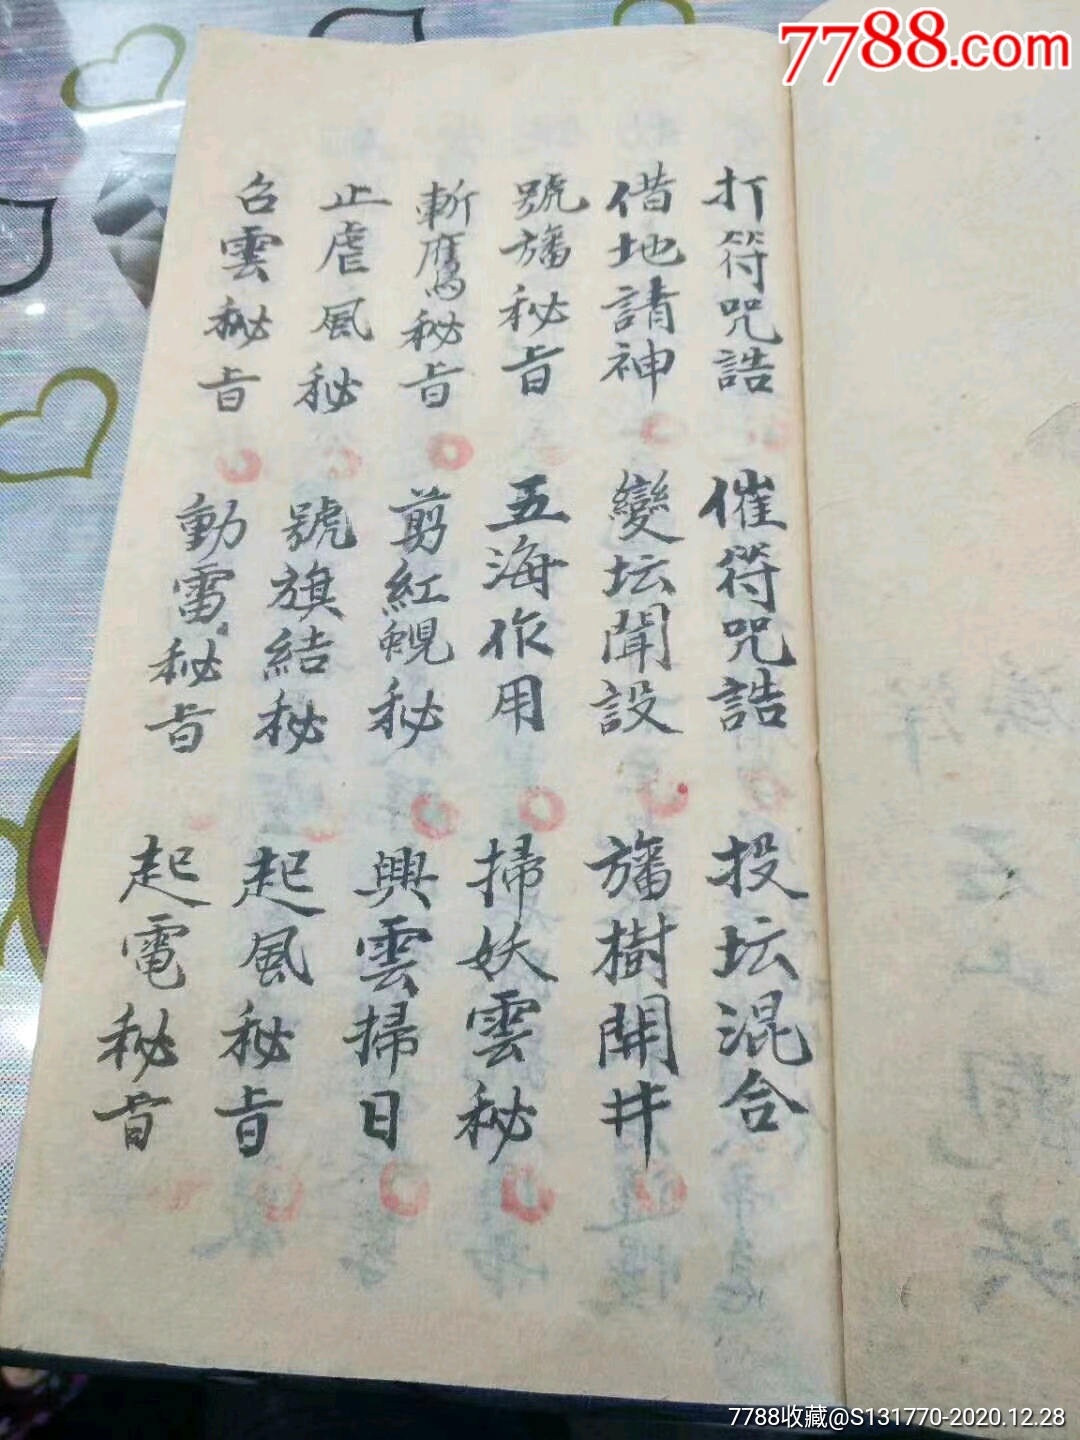 7788.com
打符咒誥 催符咒誥 投坛混合
借地請神 變坛聞設 旛樹開井
號旛秘旨 五海作用 掃妖雲秘
斬鷹秘旨 剪紅蜺秘 興雲掃日
止虐風秘 號旗結秘 起風秘旨
召雲秘旨 動雷秘旨 起電秘旨
7788收藏@S131770-2020.12.28